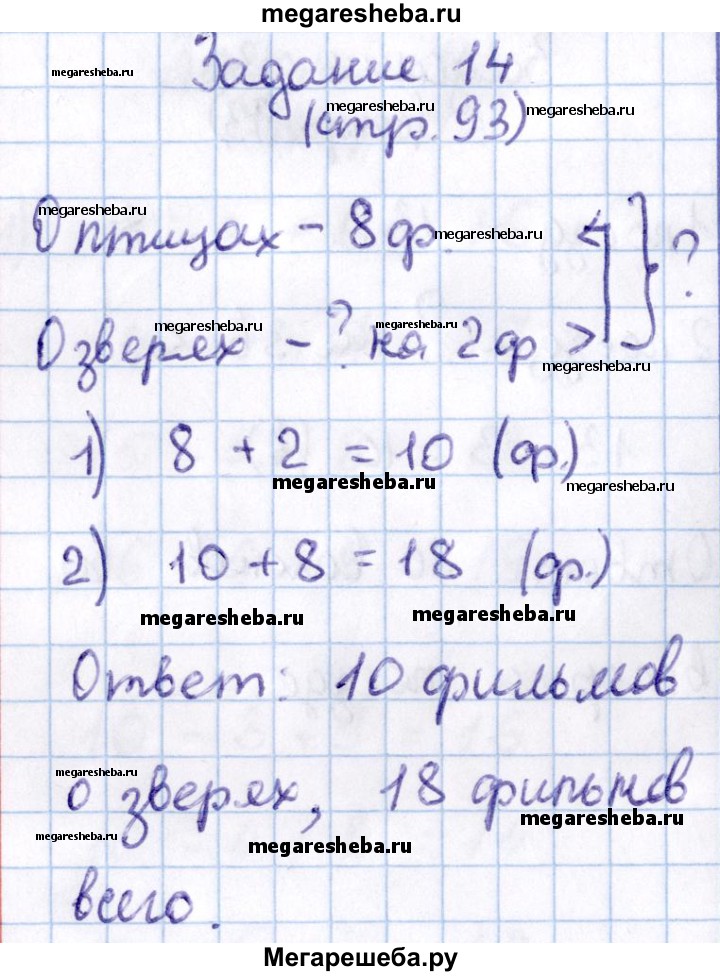 megaresheba.ru
Задание 14
megaresheba.ru
(стр. 93)
megaresheba.ru megaresheba.ru
О птицах - 8 ф. ?
megaresheba.ru megaresheba.ru
О зверях - ? на 2 ф >
megaresheba.ru megaresheba.ru megaresheba.ru
1) 8 + 2 = 10 (ф.)
megaresheba.ru megaresheba.ru
2) 10 + 8 = 18 (ф.)
megaresheba.ru megaresheba.ru
Ответ: 10 фильмов
megaresheba.ru
о зверях, 18 фильмов
megaresheba.ru megaresheba.ru megaresheba.ru
всего.
Мегарешеба.ру